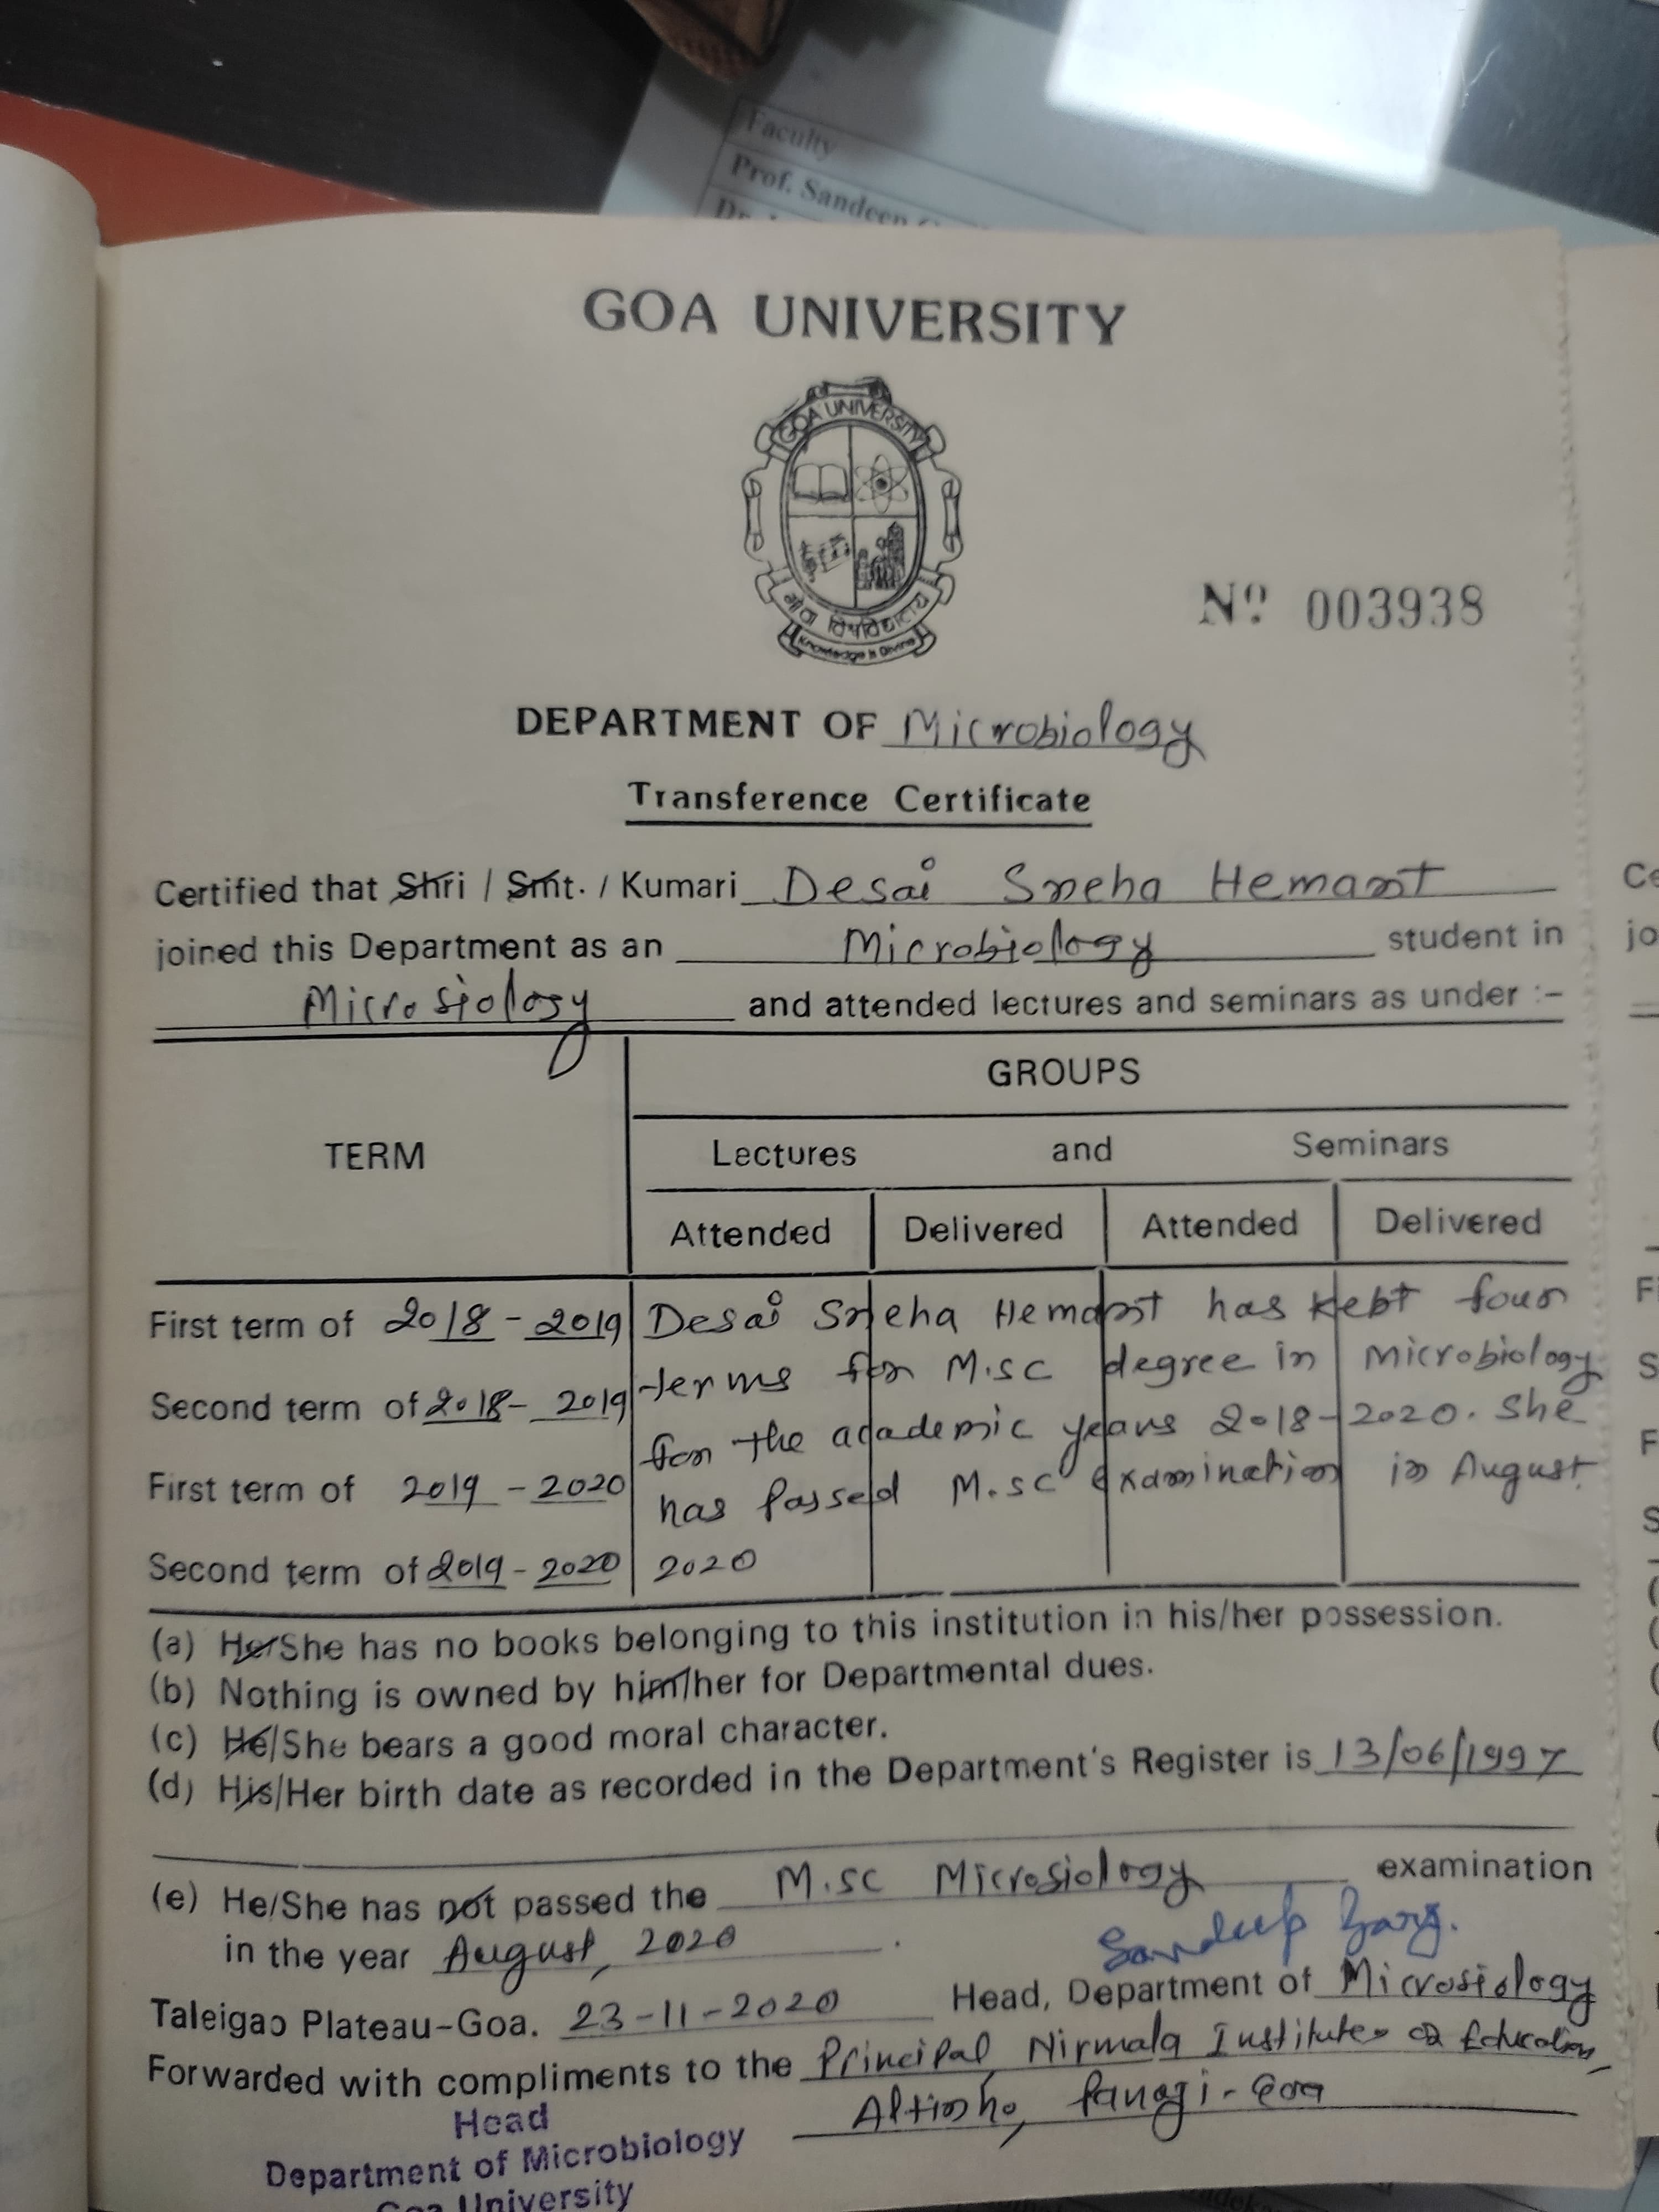 Faculty
Prof. Sandeep
Dr.
GOA UNIVERSITY
GOA UNIVERSITY
Knowledge is Divine
Nº 003938
DEPARTMENT OF Microbiology
Transference Certificate
Certified that Shri / Smt. / Kumari Desai Sneha Hemant
joined this Department as an Microbiology student in
Microbiology and attended lectures and seminars as under :-
GROUPS
TERM
Lectures and Seminars
Attended Delivered Attended Delivered
First term of 2018 - 2019 Desai Sneha Hemant has kept four
Second term of 2018- 2019 terms for M.sc degree in Microbiology
for the academic years 2018-2020. She
First term of 2019 - 2020 has passed M.sc examination in August
Second term of 2019 - 2020 2020
(a) He/She has no books belonging to this institution in his/her possession.
(b) Nothing is owned by him/her for Departmental dues.
(c) He/She bears a good moral character.
(d) His/Her birth date as recorded in the Department's Register is 13/06/1997
(e) He/She has not passed the M.sc Microbiology examination
in the year August, 2020.
Sandeep Garg.
Taleigao Plateau-Goa. 23-11-2020 Head, Department of Microbiology
Forwarded with compliments to the Principal Nirmala Institute of Education,
Altinho, Panaji-Goa
Head
Department of Microbiology
Goa University